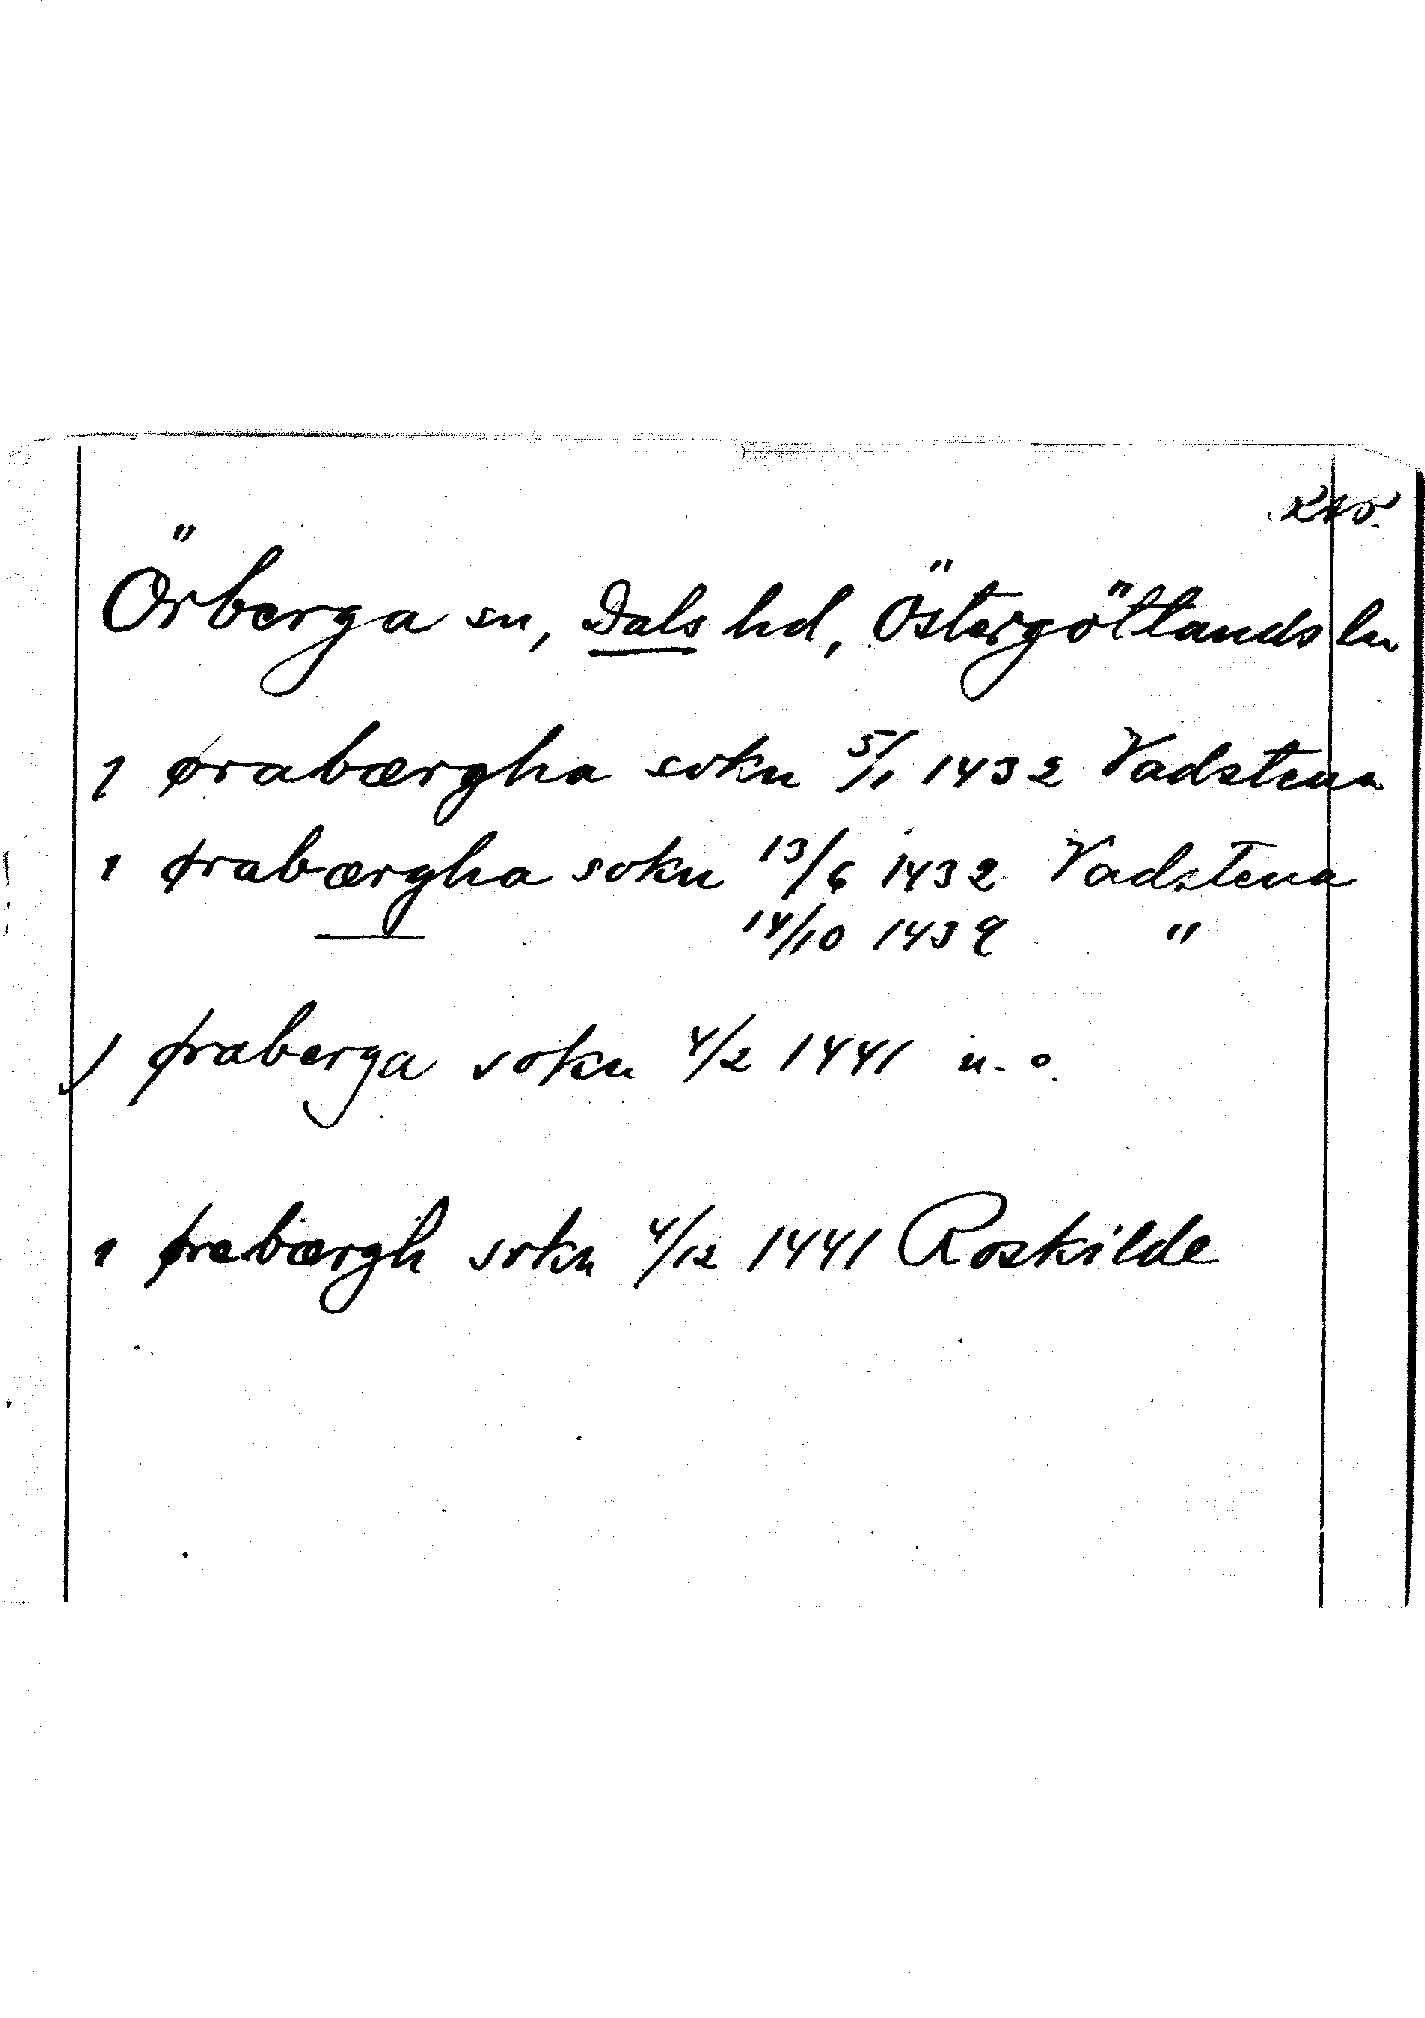 Örberga sn, Dals hd, Östergötlands ln
j ørabærgha sokn 5/1 1432 Vadstena
i ørabærgha sokn 13/6 1432 Vadstena
— 14/10 1439 "
j øraberga sokn 4/2 1441 u. o.
i ørebærgh sokn 4/12 1441 Roskilde